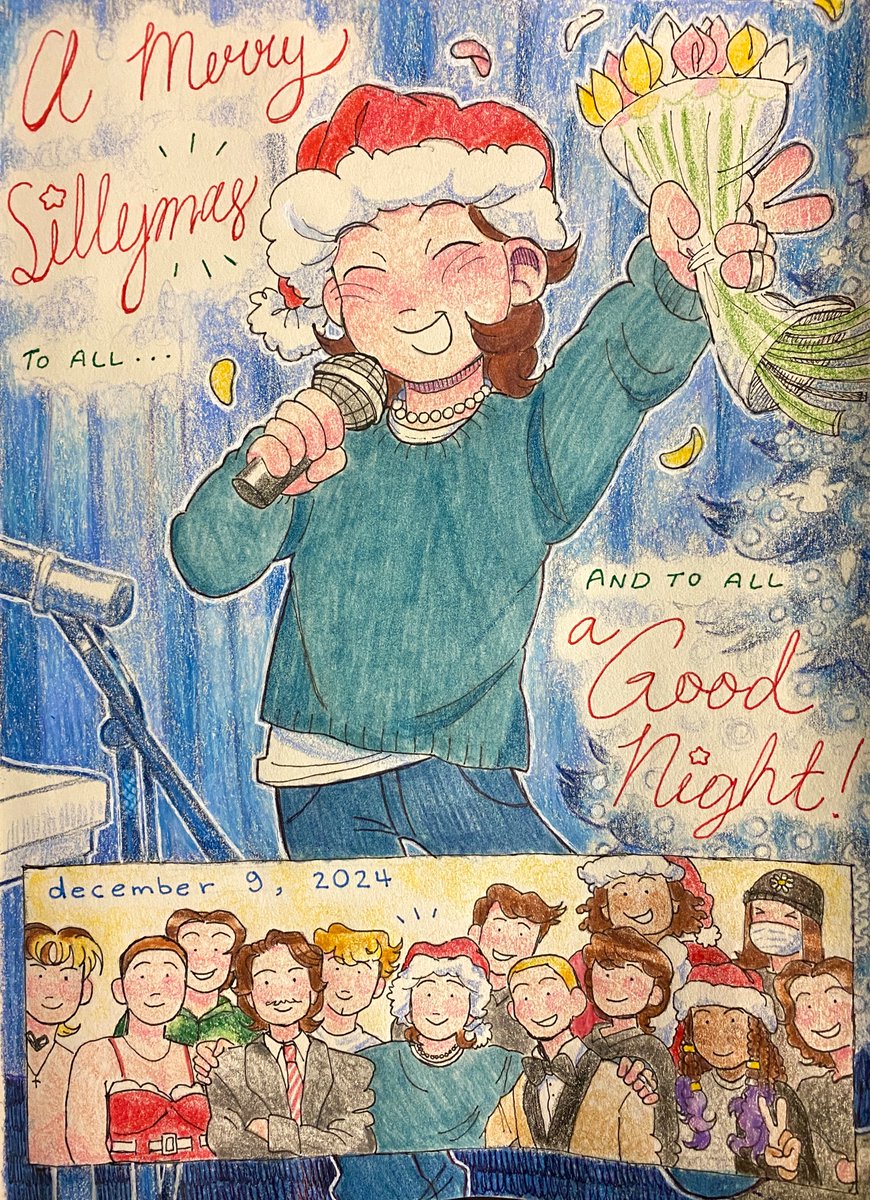 A Merry
Sillymas
TO ALL...
AND TO ALL
a Good
Night!
december 9, 2024